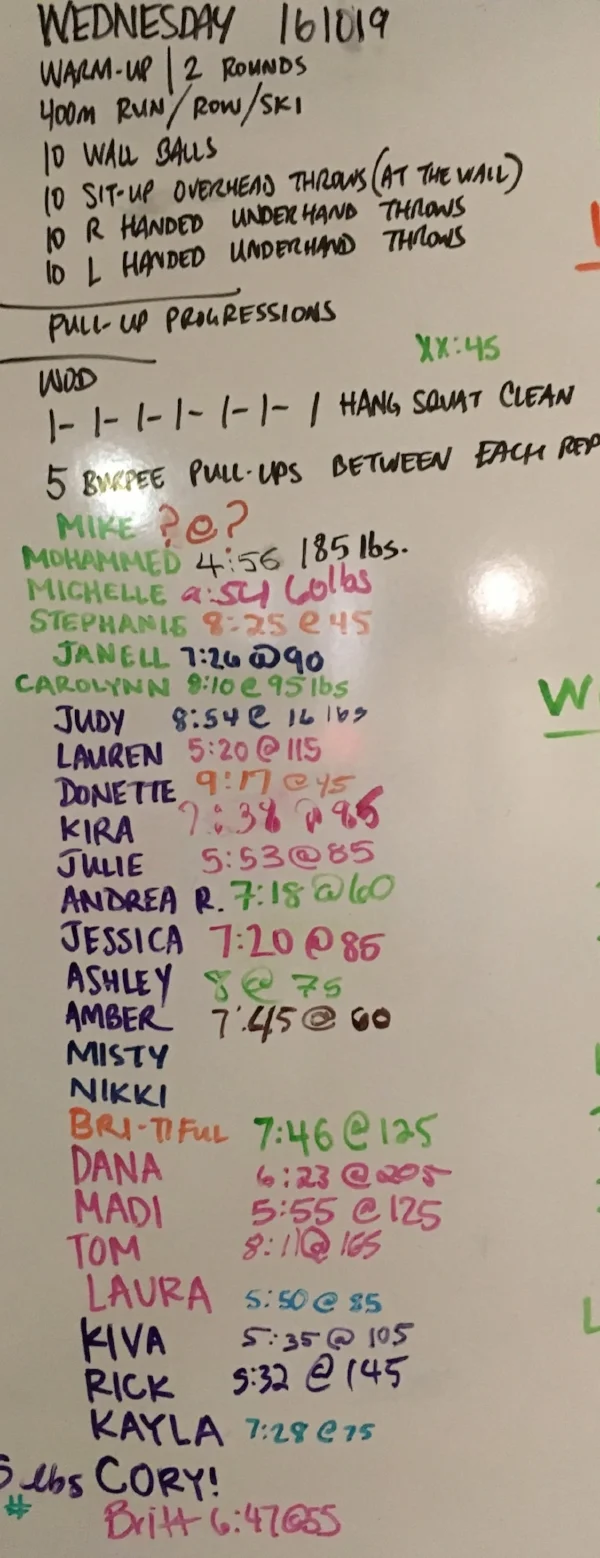 WEDNESDAY 161019
WARM-UP | 2 ROUNDS
400M RUN/ROW/SKI
10 WALL BALLS
10 SIT-UP OVERHEAD THROWS (AT THE WALL)
10 R HANDED UNDERHAND THROWS
10 L HANDED UNDERHAND THROWS
PULL-UP PROGRESSIONS
XX:45
WOD
1-1-1-1-1-1-1 HANG SQUAT CLEAN
5 BURPEE PULL-UPS BETWEEN EACH REP
MIKE ?@?
MOHAMMED 4:56 185 lbs.
MICHELLE :54 60lbs
STEPHANIE 8:25 @ 45
JANELL 7:26 @90
CAROLYNN 8:10 @ 95 lbs
JUDY 8:54 @ 16 lbs
LAUREN 5:20 @ 115
DONETTE 9:17 @ 45
KIRA 7:38 @ 85
JULIE 5:53 @ 85
ANDREA R. 7:18 @ 60
JESSICA 7:20 @ 85
ASHLEY 8 @ 75
AMBER 7:45 @ 60
MISTY
NIKKI
BRI-TIFUL 7:46 @ 125
DANA 6:23 @ 205
MADI 5:55 @ 125
TOM 8:11 @ 165
LAURA 5:50 @ 85
KIVA 5:35 @ 105
RICK 5:32 @ 145
KAYLA 7:28 @ 75
lbs CORY!
#
Britt 6:47@55